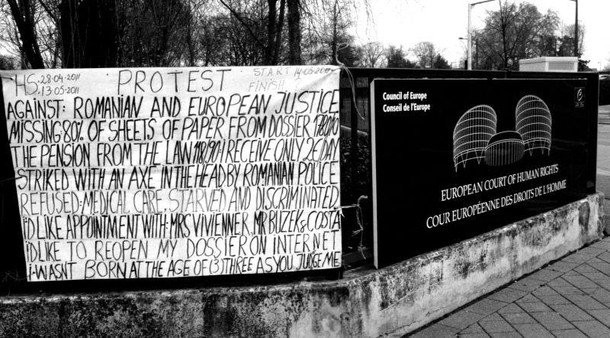 HS: 28-04-2011
13-05-2011
PROTEST
START
AGAINST: ROMANIAN AND EUROPEAN JUSTICE
MISSING 80% OF SHEETS OF PAPER FROM DOSSIER
THE PENSION FROM THE LAW RECEIVE ONLY 2€ DAY
STRIKED WITH AN AXE IN THE HEAD BY ROMANIAN POLICE
REFUSED: MEDICAL CARE, STARVED AND DISCRIMINATED
I'D LIKE APPOINTMENT WITH: MRS VIVIENNE R. MR BUZEK & COSTA
I'D LIKE TO REOPEN MY DOSSIER ON INTERNET
I WASN'T BORN AT THE AGE OF (3) THREE AS YOU JUDGE ME
Council of Europe
Conseil de l'Europe
EUROPEAN COURT OF HUMAN RIGHTS
COUR EUROPÉENNE DES DROITS DE L'HOMME